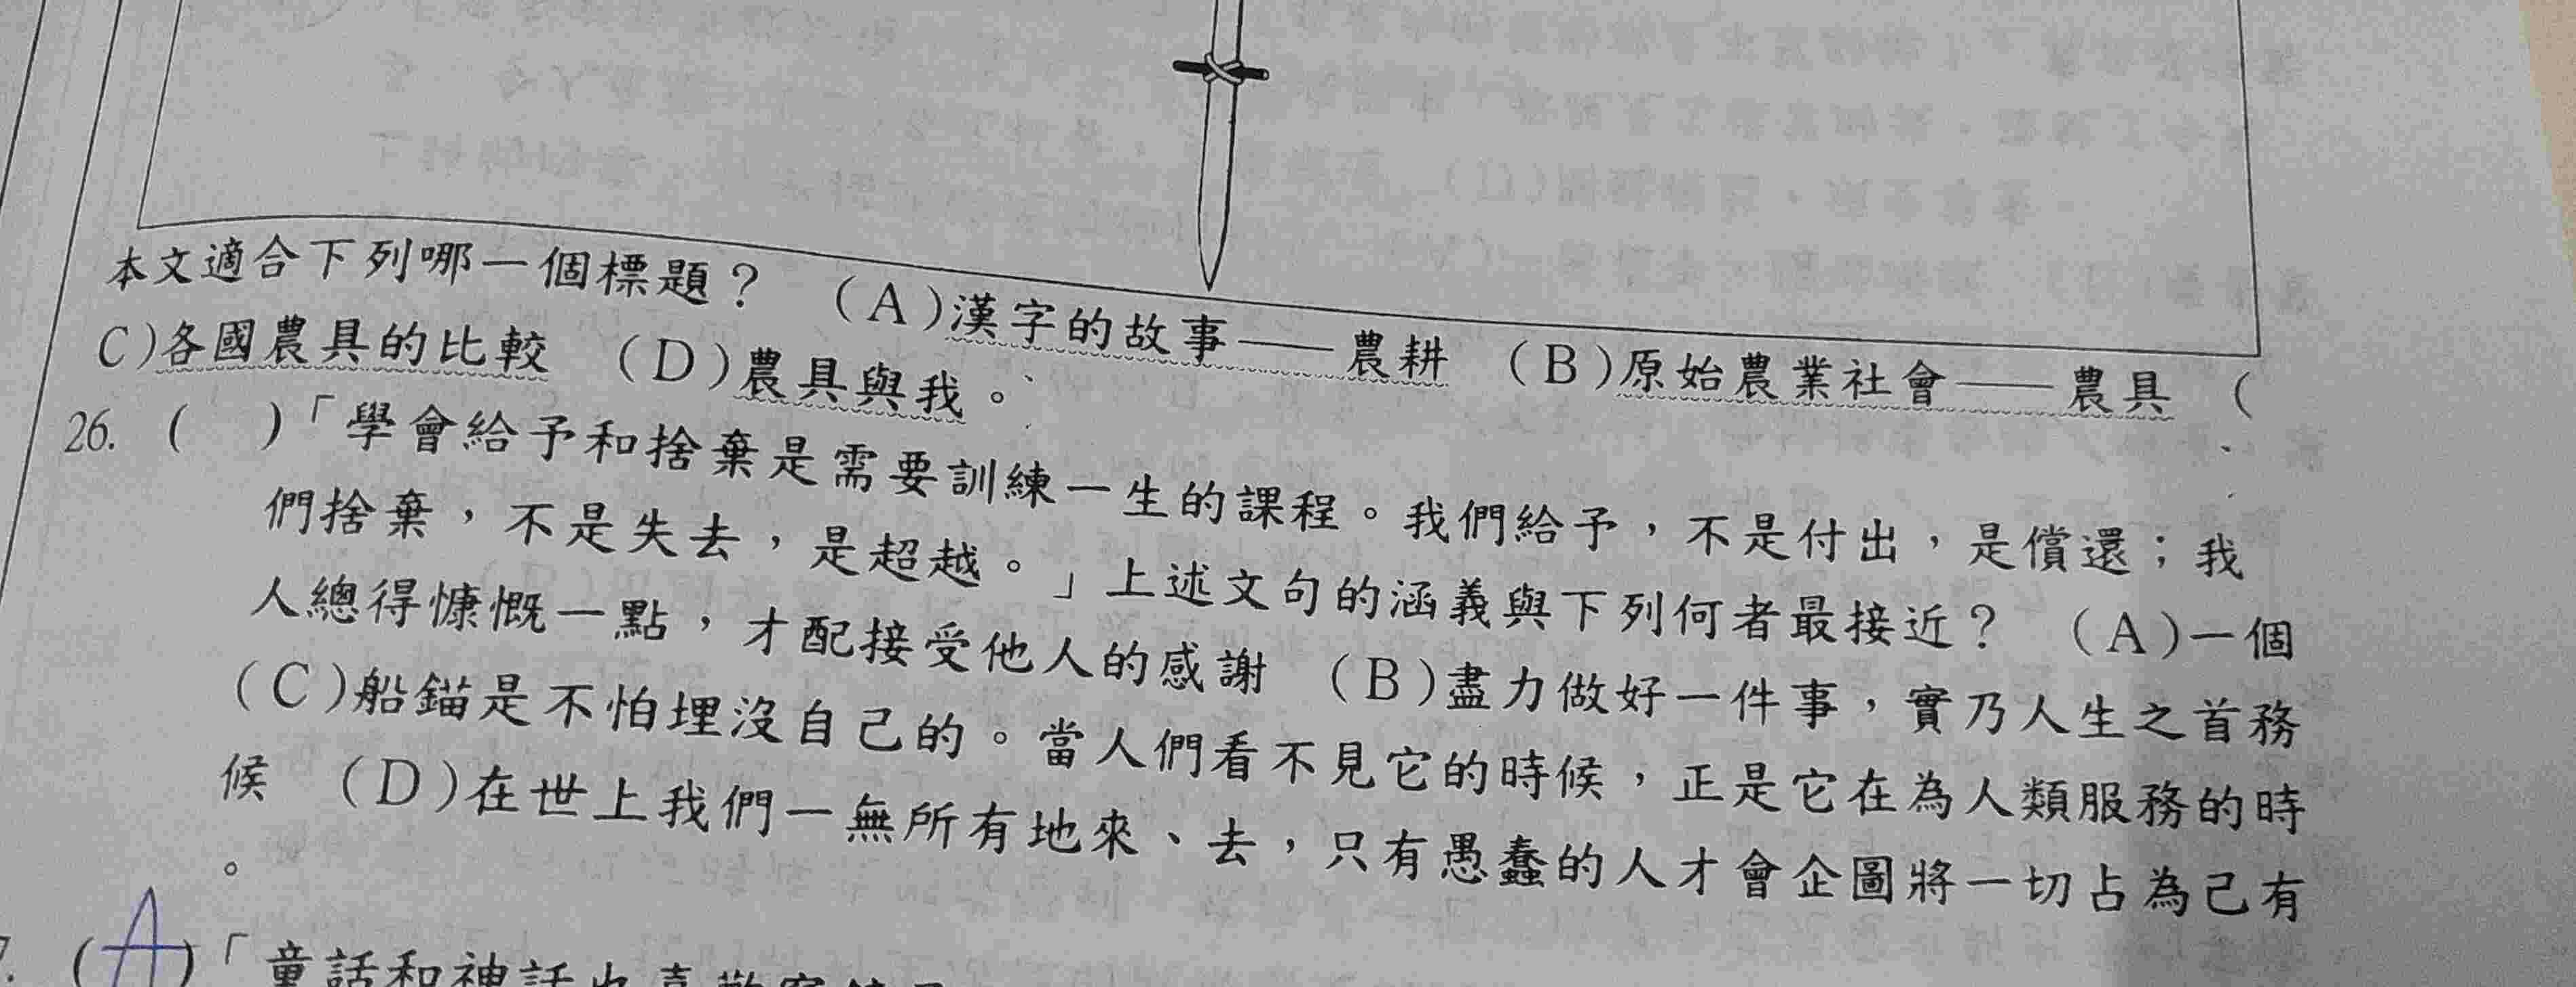 本文適合下列哪一個標題？ (A)漢字的故事——農耕 (B)原始農業社會——農具 (
C)各國農具的比較 (D)農具與我。
26. ( )「學會給予和捨棄是需要訓練一生的課程。我們給予，不是付出，是償還；我
們捨棄，不是失去，是超越。」上述文句的涵義與下列何者最接近？ (A)一個
人總得慷慨一點，才配接受他人的感謝 (B)盡力做好一件事，實乃人生之首務
(C)船錨是不怕埋沒自己的。當人們看不見它的時候，正是它在為人類服務的時
候 (D)在世上我們一無所有地來、去，只有愚蠢的人才會企圖將一切占為己有
。
7. (A)「童話和神話也喜歡